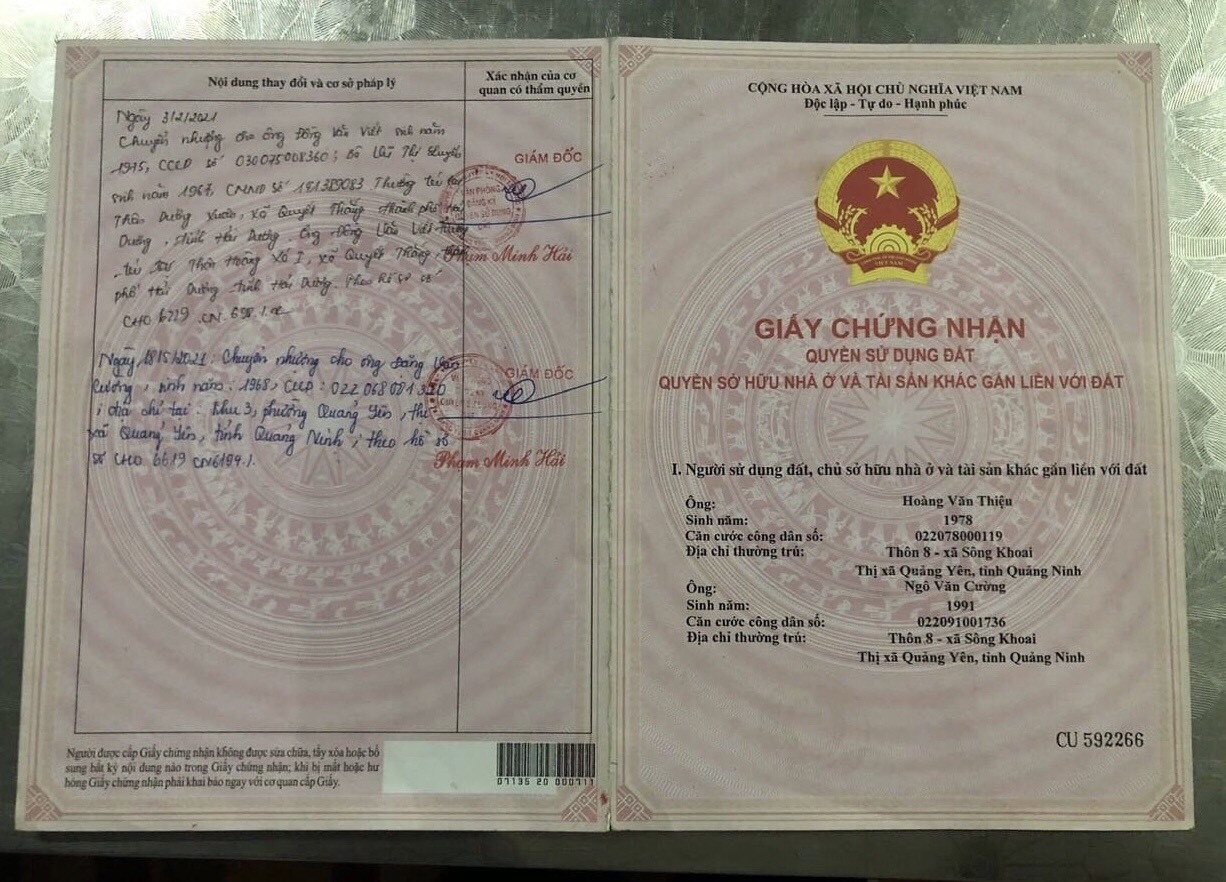 Nội dung thay đổi và cơ sở pháp lý
Xác nhận của cơ
quan có thẩm quyền
Ngày 3/2/2021
Chuyển nhượng cho ông Đồng Văn Viết sinh năm
1975, CCCD số 030075008360; bà Vũ Thị
sinh năm 1967, CMND số 181389083 Thường trú tại
Thôn Dưỡng Xuân, xã Quyết Thắng thành phố Hải
Dương, tỉnh Hải Dương. Ông Đồng Văn Viết thường
trú tại Thôn Hoàng Xá I, xã Quyết Thắng, thành
phố Hải Dương tỉnh Hải Dương. Theo hồ sơ số
GIÁM ĐỐC
Phạm Minh Hải
Ngày 18/5/2021: Chuyển nhượng cho ông Đặng Văn
Cương, sinh năm: 1968, CCCD: 022068081320
, địa chỉ tại: Khu 3, phường Quảng Yên, thị
xã Quảng Yên, tỉnh Quảng Ninh, theo hồ sơ
số CHO 6619 CN6199.1.
GIÁM ĐỐC
Phạm Minh Hải
Người được cấp Giấy chứng nhận không được sửa chữa, tẩy xóa hoặc bổ
sung bất kỳ nội dung nào trong Giấy chứng nhận; khi bị mất hoặc hư
hỏng Giấy chứng nhận phải khai báo ngay với cơ quan cấp Giấy.
07135 20 000711
CỘNG HÒA XÃ HỘI CHỦ NGHĨA VIỆT NAM
Độc lập - Tự do - Hạnh phúc
VIỆT NAM
GIẤY CHỨNG NHẬN
QUYỀN SỬ DỤNG ĐẤT
QUYỀN SỞ HỮU NHÀ Ở VÀ TÀI SẢN KHÁC GẮN LIỀN VỚI ĐẤT
I. Người sử dụng đất, chủ sở hữu nhà ở và tài sản khác gắn liền với đất
Ông: Hoàng Văn Thiệu
Sinh năm: 1978
Căn cước công dân số: 022078000119
Địa chỉ thường trú: Thôn 8 - xã Sông Khoai
Thị xã Quảng Yên, tỉnh Quảng Ninh
Ông: Ngô Văn Cường
Sinh năm: 1991
Căn cước công dân số: 022091001736
Địa chỉ thường trú: Thôn 8 - xã Sông Khoai
Thị xã Quảng Yên, tỉnh Quảng Ninh
CU 592266